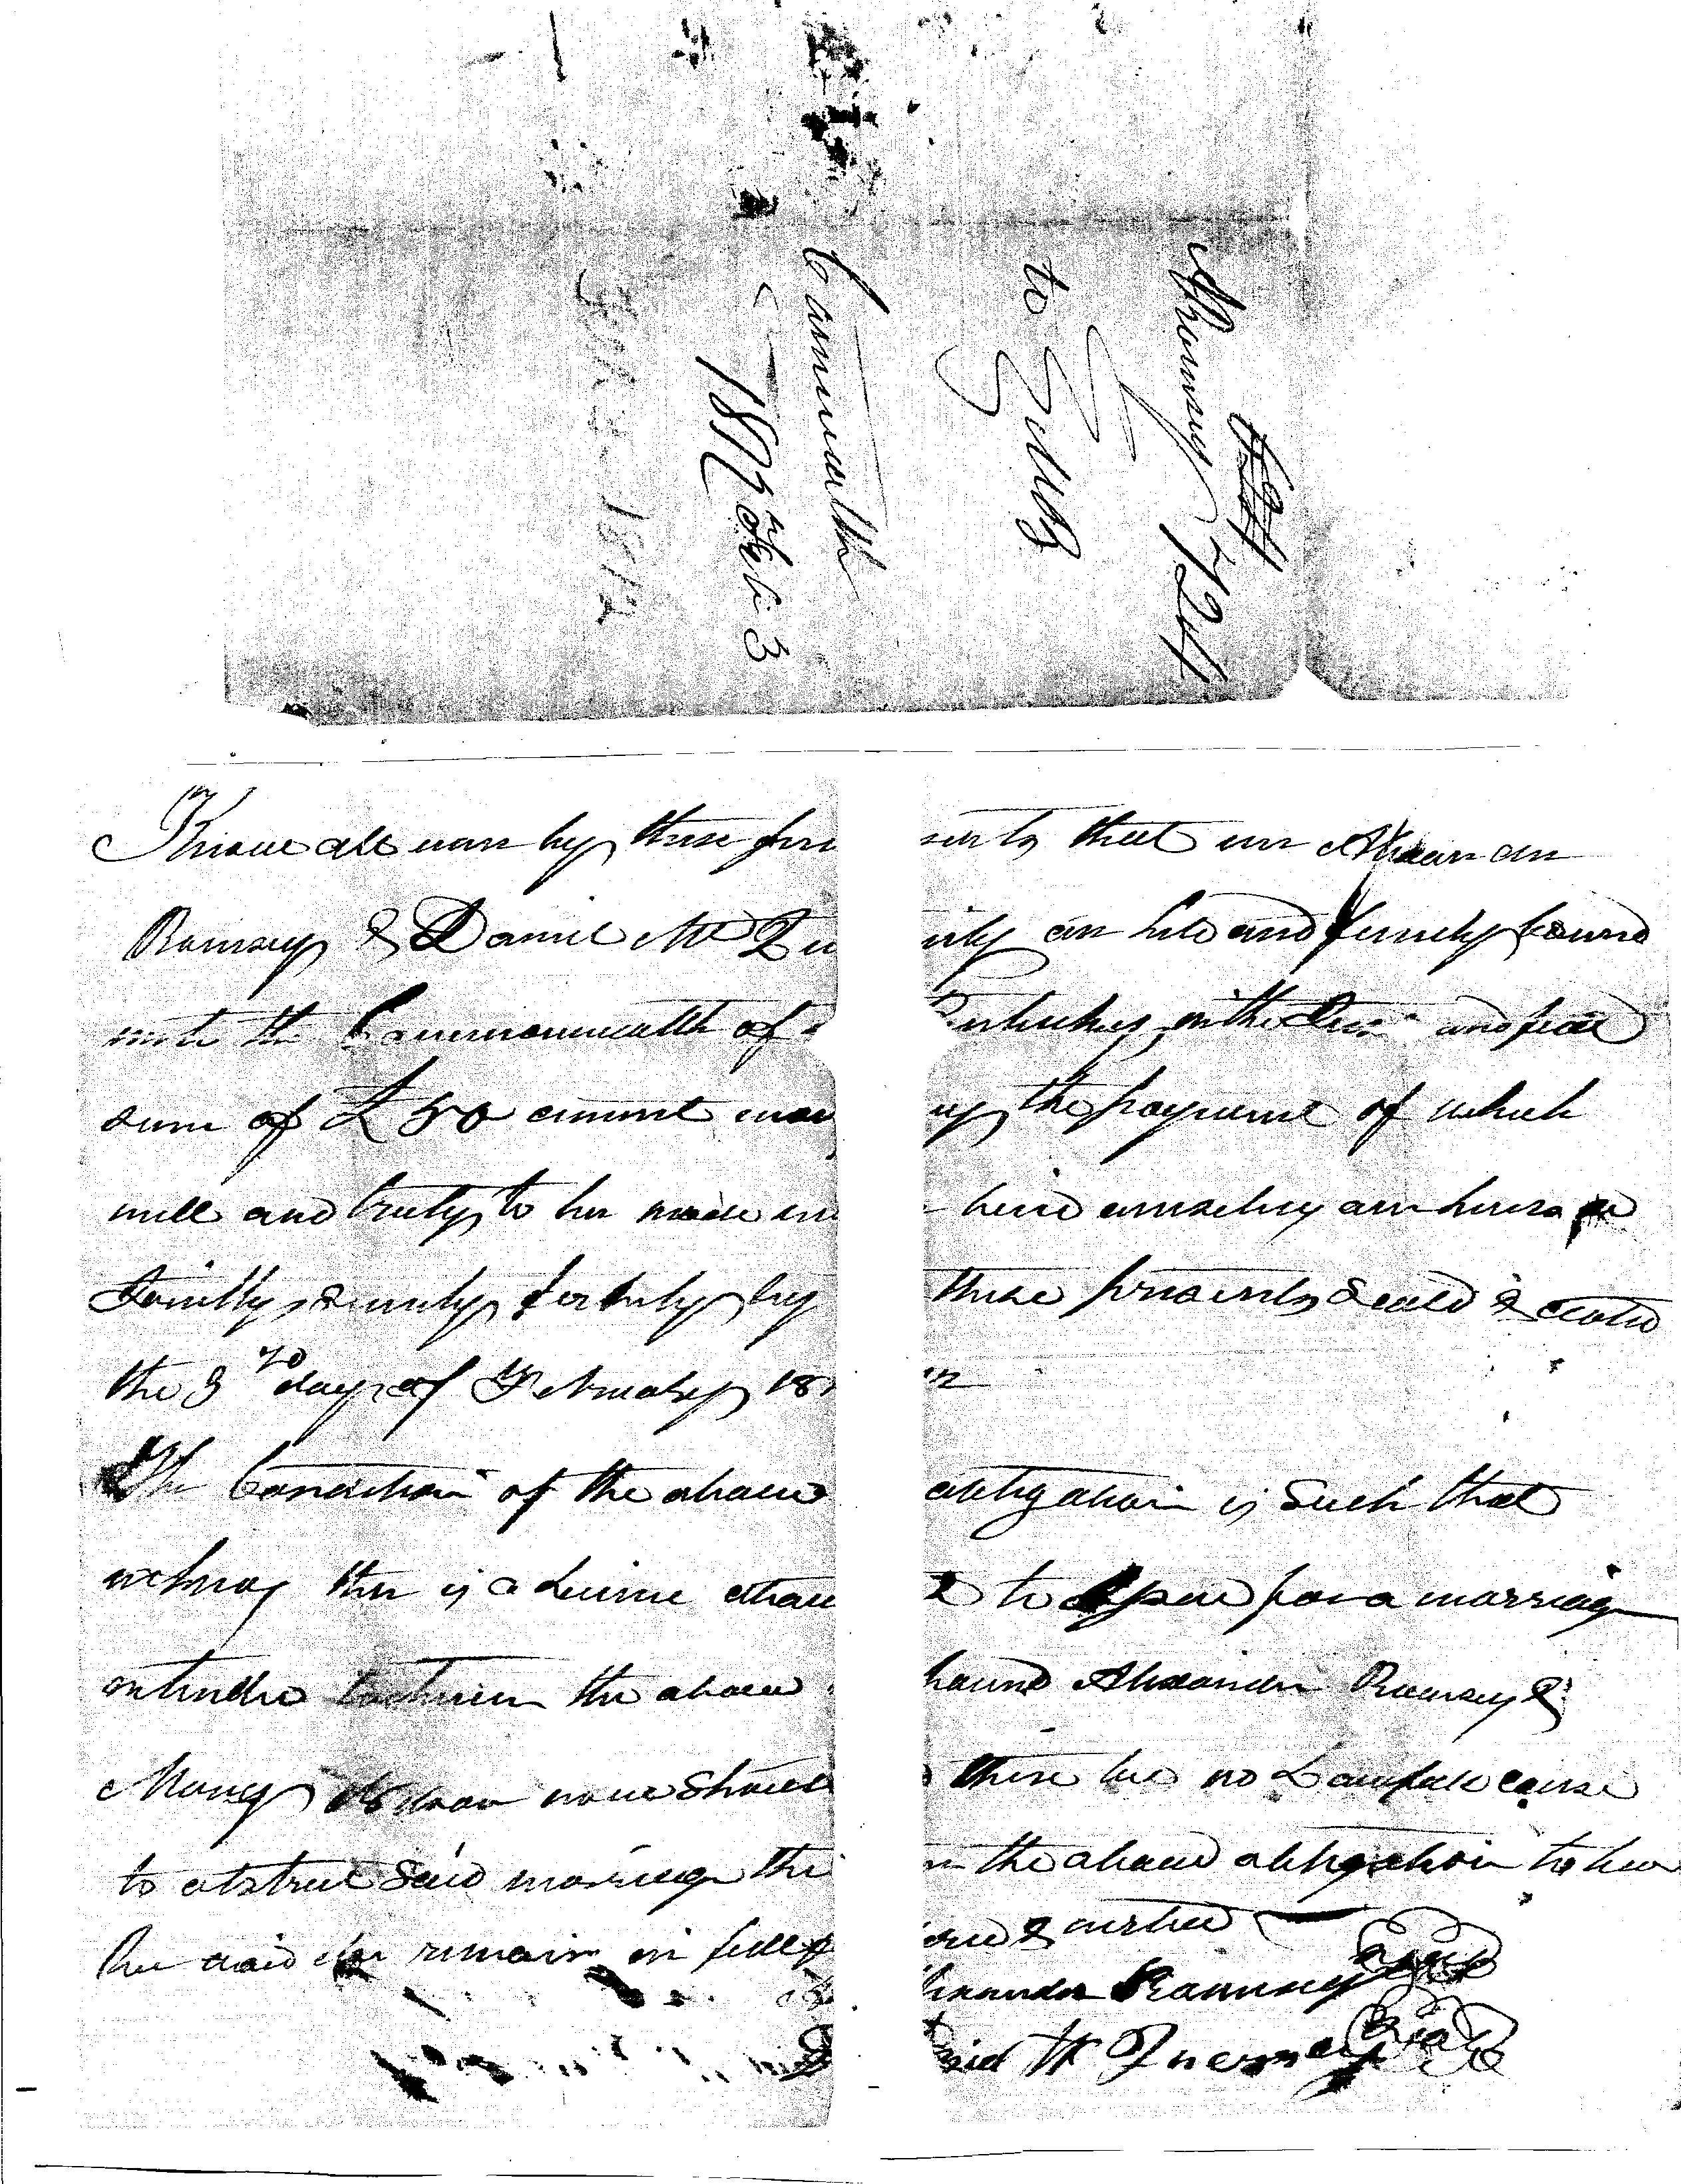 724
Ramsey 724
to
Commwealth
1812 Feb 3
1812
Know all men by these presents that we Alexander
Ramsey & Daniel Mc are held and firmly bound
unto the Commonwealth of Kentucky in the and full
sum of £50 current money the payment of which
well and truly to be made we bind ourselves our heirs
Jointly severally firmly by these presents Seald & dated
the 3rd day of February 1812
The Condition of the above obligation is Such that
whereas there is a license to for a marriage
intended between the above bound Alexander Ramsey &
Nancy now should there be no Lawfull cause
to obstruct Said marriage then the above obligation to be
void else remain in full &
Alexander Ramsey Seal
Seal